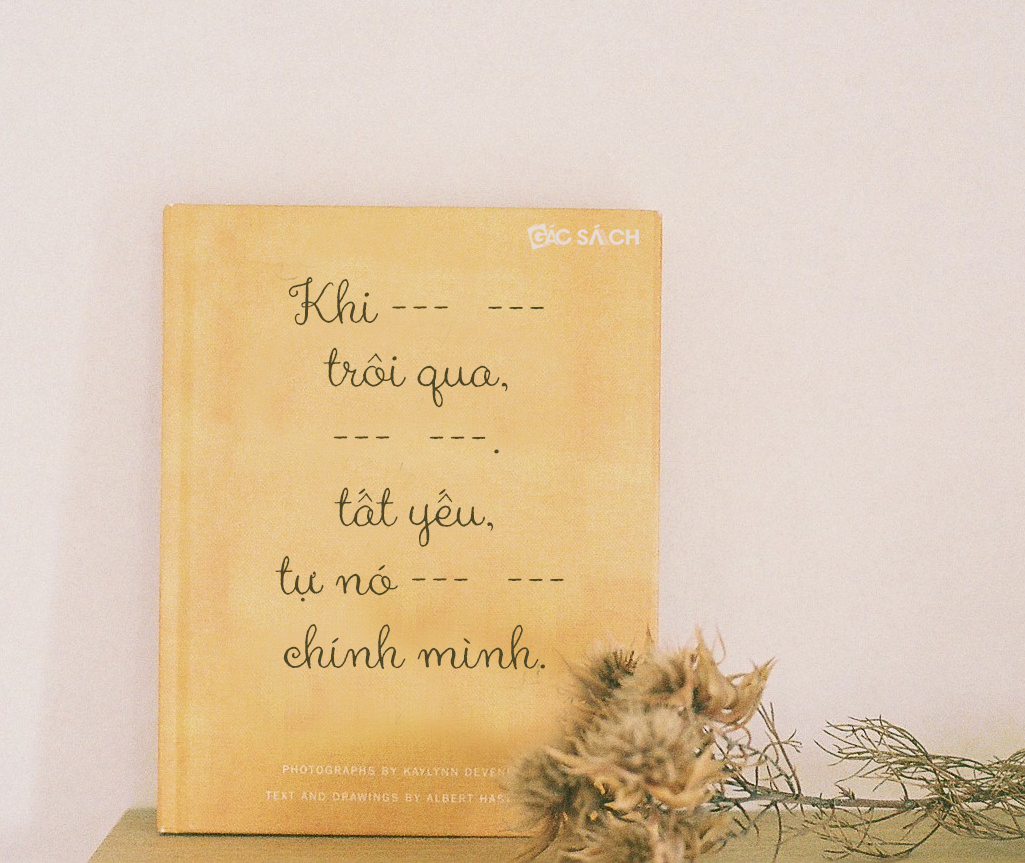 GÁC SÁCH
Khi --- ---
trôi qua,
--- ---.
tất yếu,
tự nó --- ---
chính mình.
PHOTOGRAPHS BY KAYLYNN
TEXT AND DRAWINGS BY ALBERT